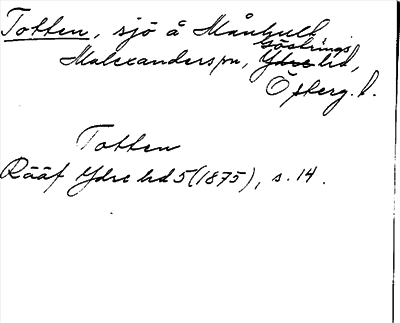 Totten, sjö å Månhult
Göstrings
Malexanders sn, Ydre hd,
Östergötl.
Totten
Rääf Ydre hd 5 (1875), s. 14.